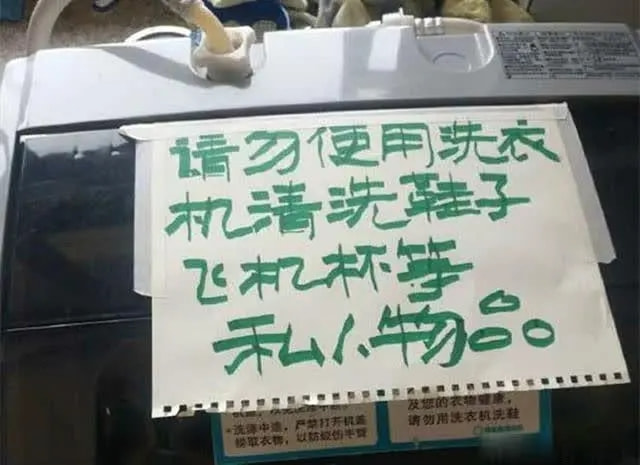 请勿使用洗衣
机清洗鞋子
飞机杯等
私人物品
洗涤中途,严禁打开机盖
捞取衣物,以防绞伤手臂
及您的衣物健康,
请勿用洗衣机洗鞋